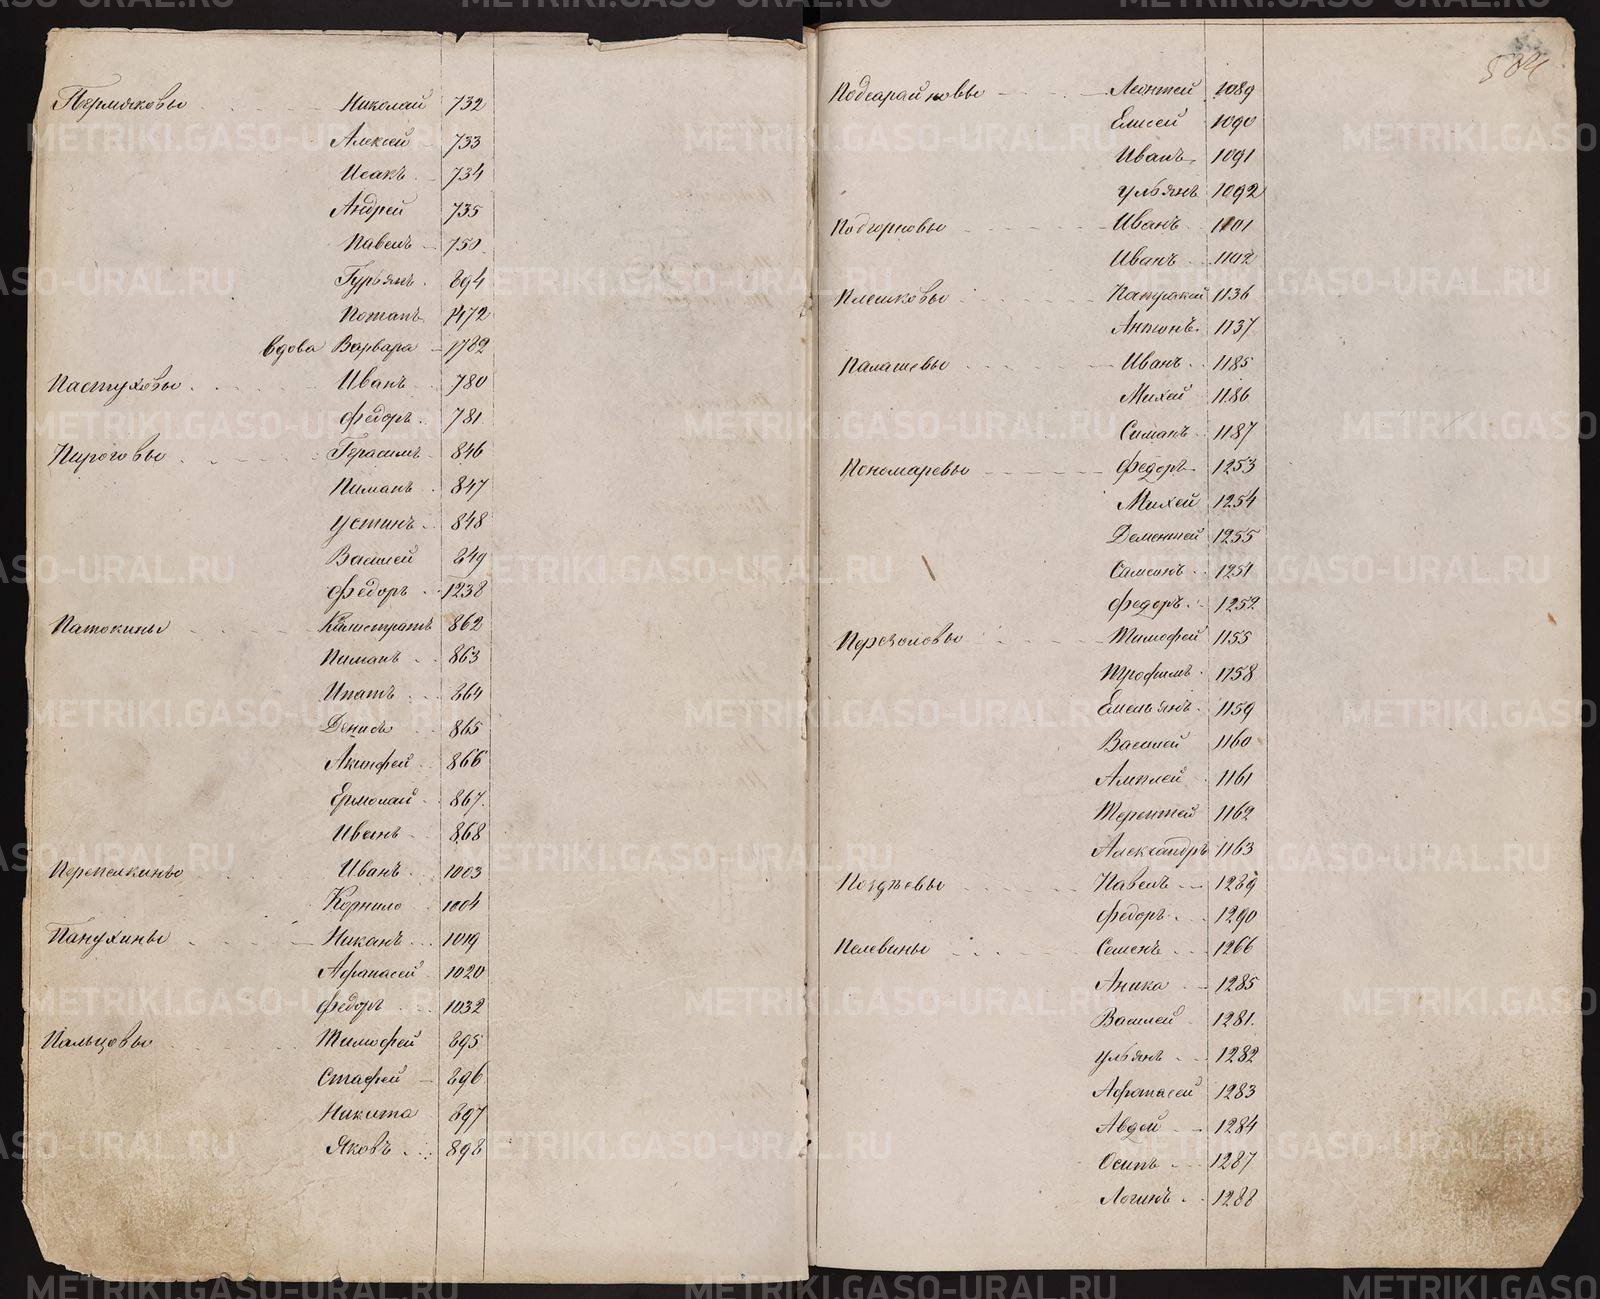 Пермяковы Николай 732
Алексей 733
Исакъ 734
Андрей 735
Павелъ 750
Гурьянъ 894
Потапъ 1472
вдова Варвара 1782
Пастуховы Иванъ 780
Федоръ 781
Пироговы Герасимъ 846
Пиманъ 847
Устинъ 848
Василей 849
Федоръ 1238
Патокины Калистратъ 862
Пиманъ 863
Ипатъ 864
Денисъ 865
Акинфей 866
Ермолай 867
Иванъ 868
Перепелкины Иванъ 1003
Корнило 1004
Панухины Никанъ 1019
Афанасей 1020
Федоръ 1032
Пальцовы Тимофей 895
Стафей 896
Никита 897
Яковъ 898
504
Подсарайновы Леонтей 1089
Елисей 1090
Иванъ 1091
Ульянъ 1092
Подгорновы Иванъ 1101
Иванъ 1102
Плешковы Патракей 1136
Антонъ 1137
Палашевы Иванъ 1185
Михей 1186
Симанъ 1187
Пономаревы Федоръ 1253
Михей 1254
Дементей 1255
Самсонъ 1251
Федоръ 1252
Тимофей 1155
Трофимъ 1158
Емельянъ 1159
Василей 1160
Амплей 1161
Терентей 1162
Александръ 1163
Поздѣевы Павелъ 1289
Федоръ 1290
Пелевины Семенъ 1266
Аника 1285
Василей 1281
Ульянъ 1282
Афонасей 1283
Авдей 1284
Осипъ 1287
Логинъ 1288
METRIKI.GASO-URAL.RU